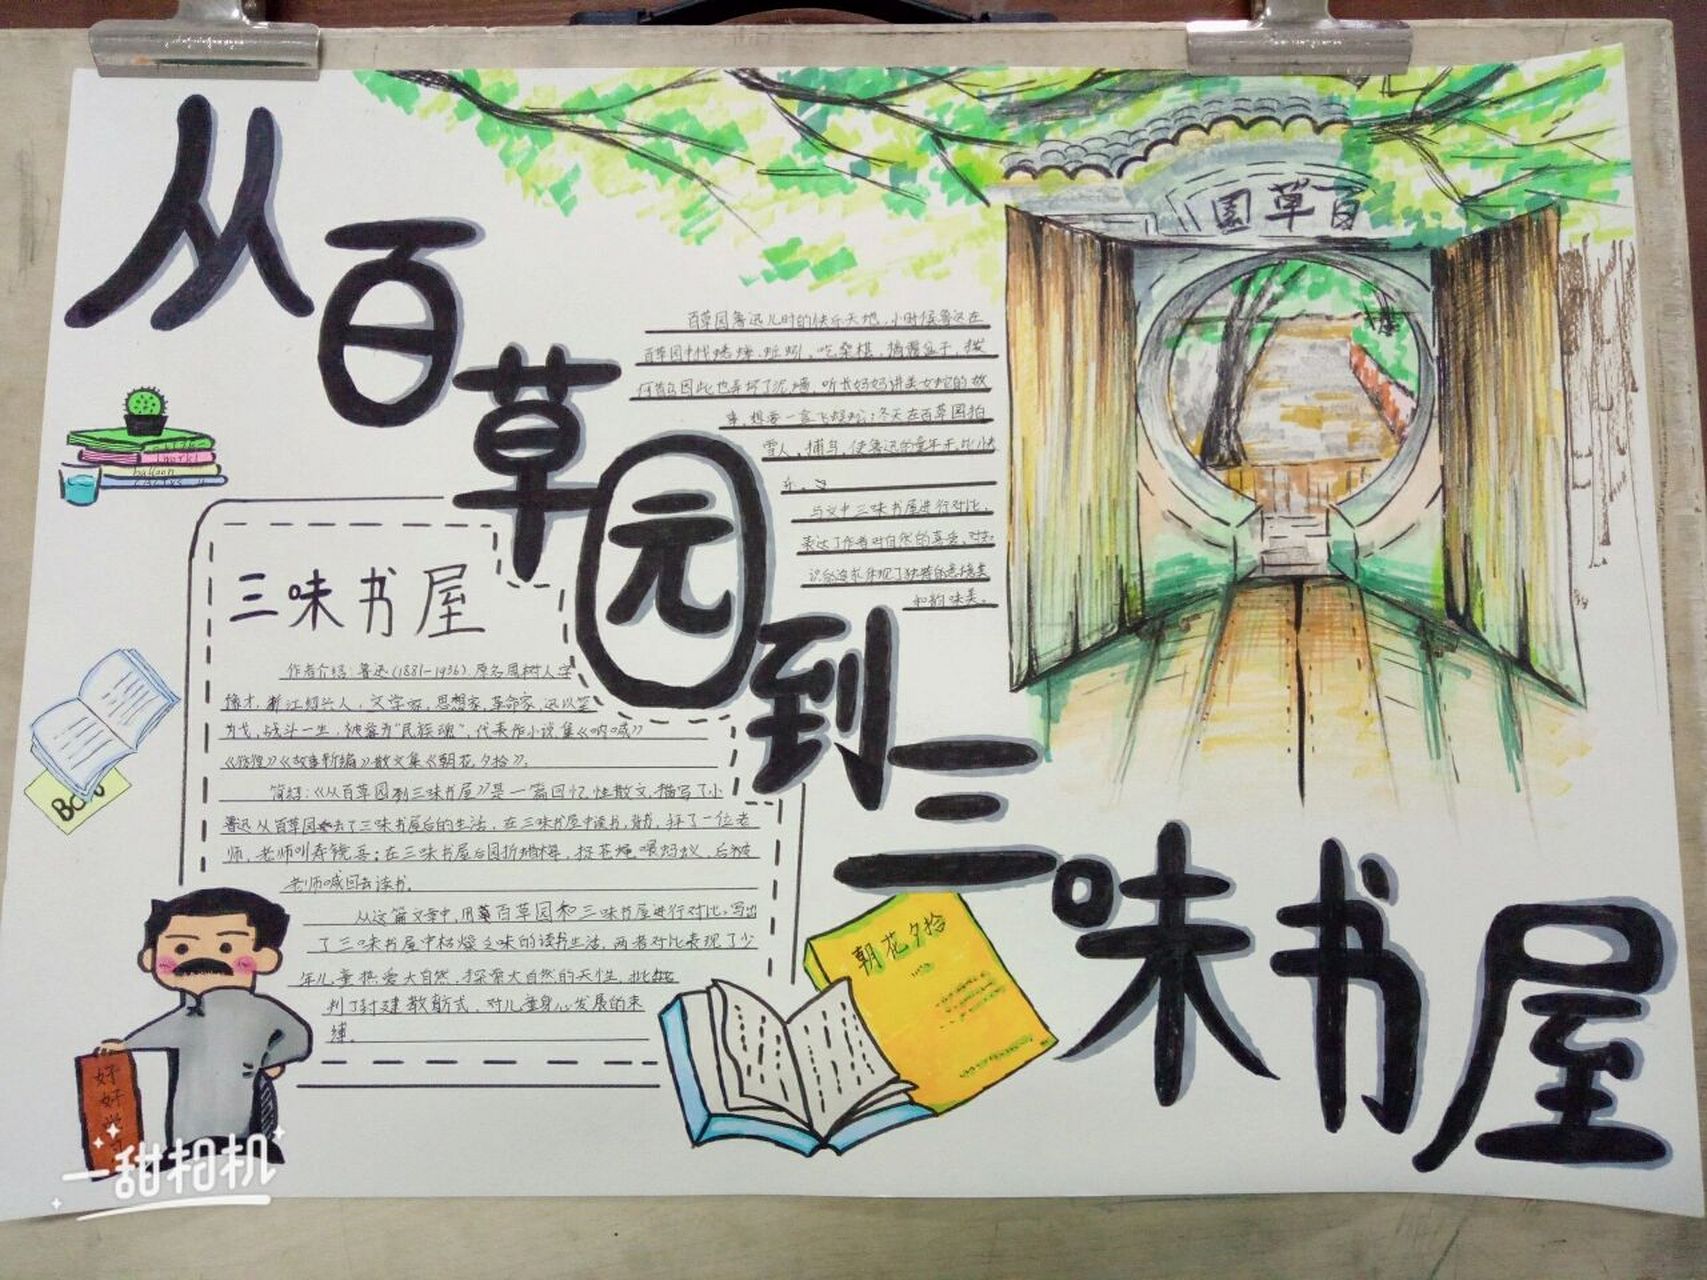 从百草园到三味书屋
百草园
百草园鲁迅儿时的快乐天地,小时候鲁迅在
百草园中找蟋蟀、蚯蚓、吃桑椹、摘覆盆子,拔
何首乌因此也弄坏了泥墙,听长妈妈讲美女蛇的故
事,想要一盒飞蜈蚣;冬天在百草园拍
雪人,捕鸟,使鲁迅的童年无比快
乐。
与文中三味书屋进行对比,
表达了作者对自然的喜爱、对知
识的追求体现了独特的意境美
和韵味美。
三味书屋
作者介绍:鲁迅(1881-1936)原名周树人字
豫才,浙江绍兴人,文学家,思想家,革命家,迅以笔
为戈,战斗一生,被誉为“民族魂”,代表作小说集《呐喊》
《彷徨》《故事新编》散文集《朝花夕拾》。
简绍:《从百草园到三味书屋》是一篇回忆性散文,描写了小
鲁迅从百草园去了三味书屋后的生活,在三味书屋中读书,背书,拜了一位老
师,老师叫寿镜吾;在三味书屋后园折腊梅,捉苍蝇喂蚂蚁,后被
老师喊回去读书。
从这篇文章中,用百草园和三味书屋进行对比,写出
了三味书屋中枯燥乏味的读书生活,两者对比表现了少
年儿童热爱大自然,探索大自然的天性,批
判了封建教育方式,对儿童身心发展的束
缚。
朝花夕拾
balloon
cactus
好好学习
一甜相机